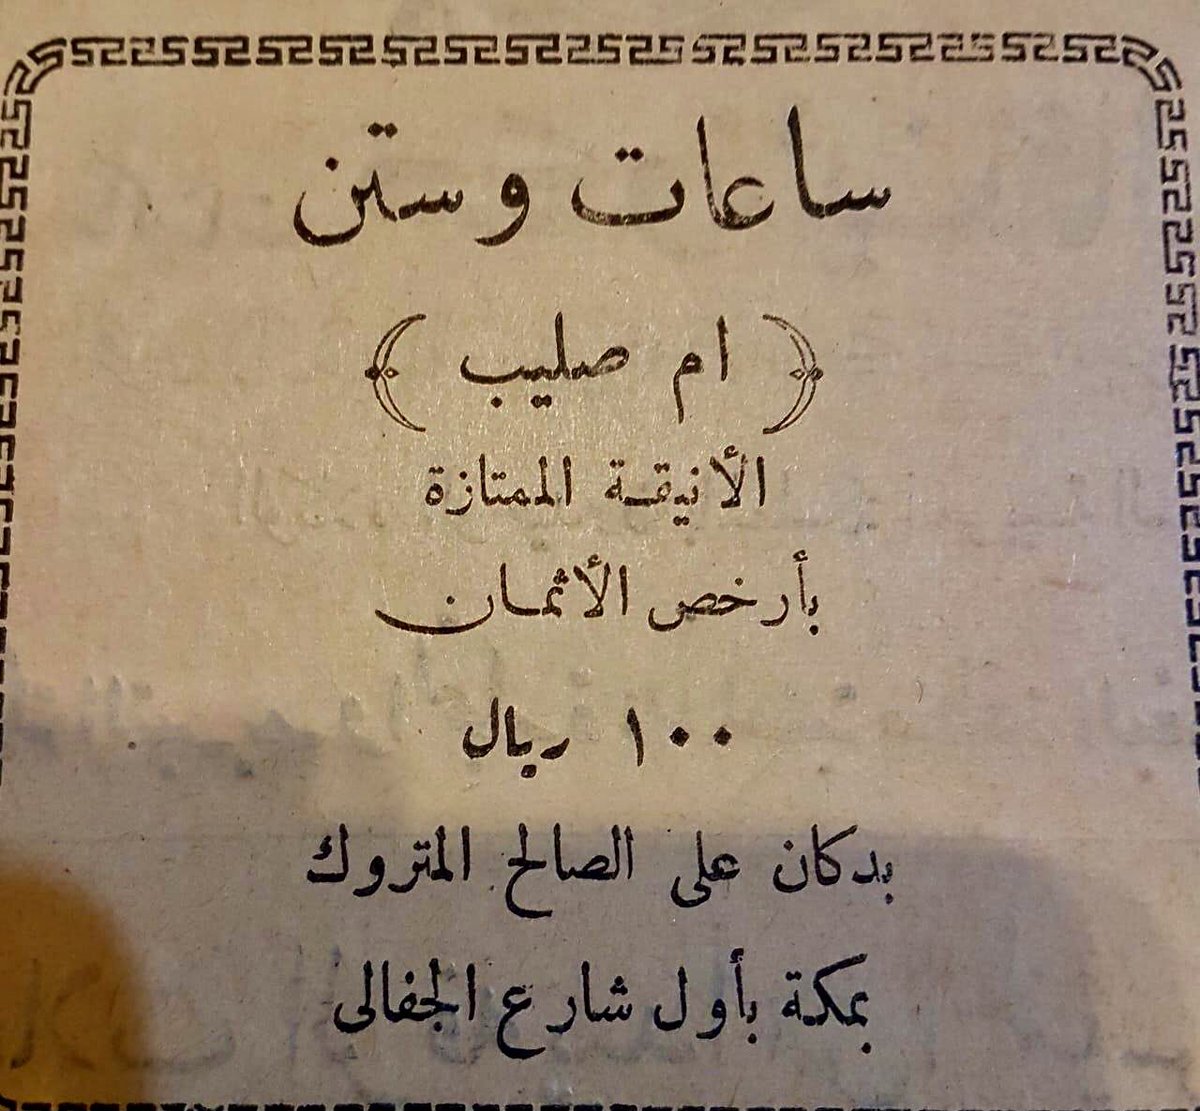 ساعات وستن
﴿ ام صليب ﴾
الأنيقة الممتازة
بأرخص الأثمان
١٠٠ ريال
بدكان على الصالح المتروك
بمكة بأول شارع الجفالى